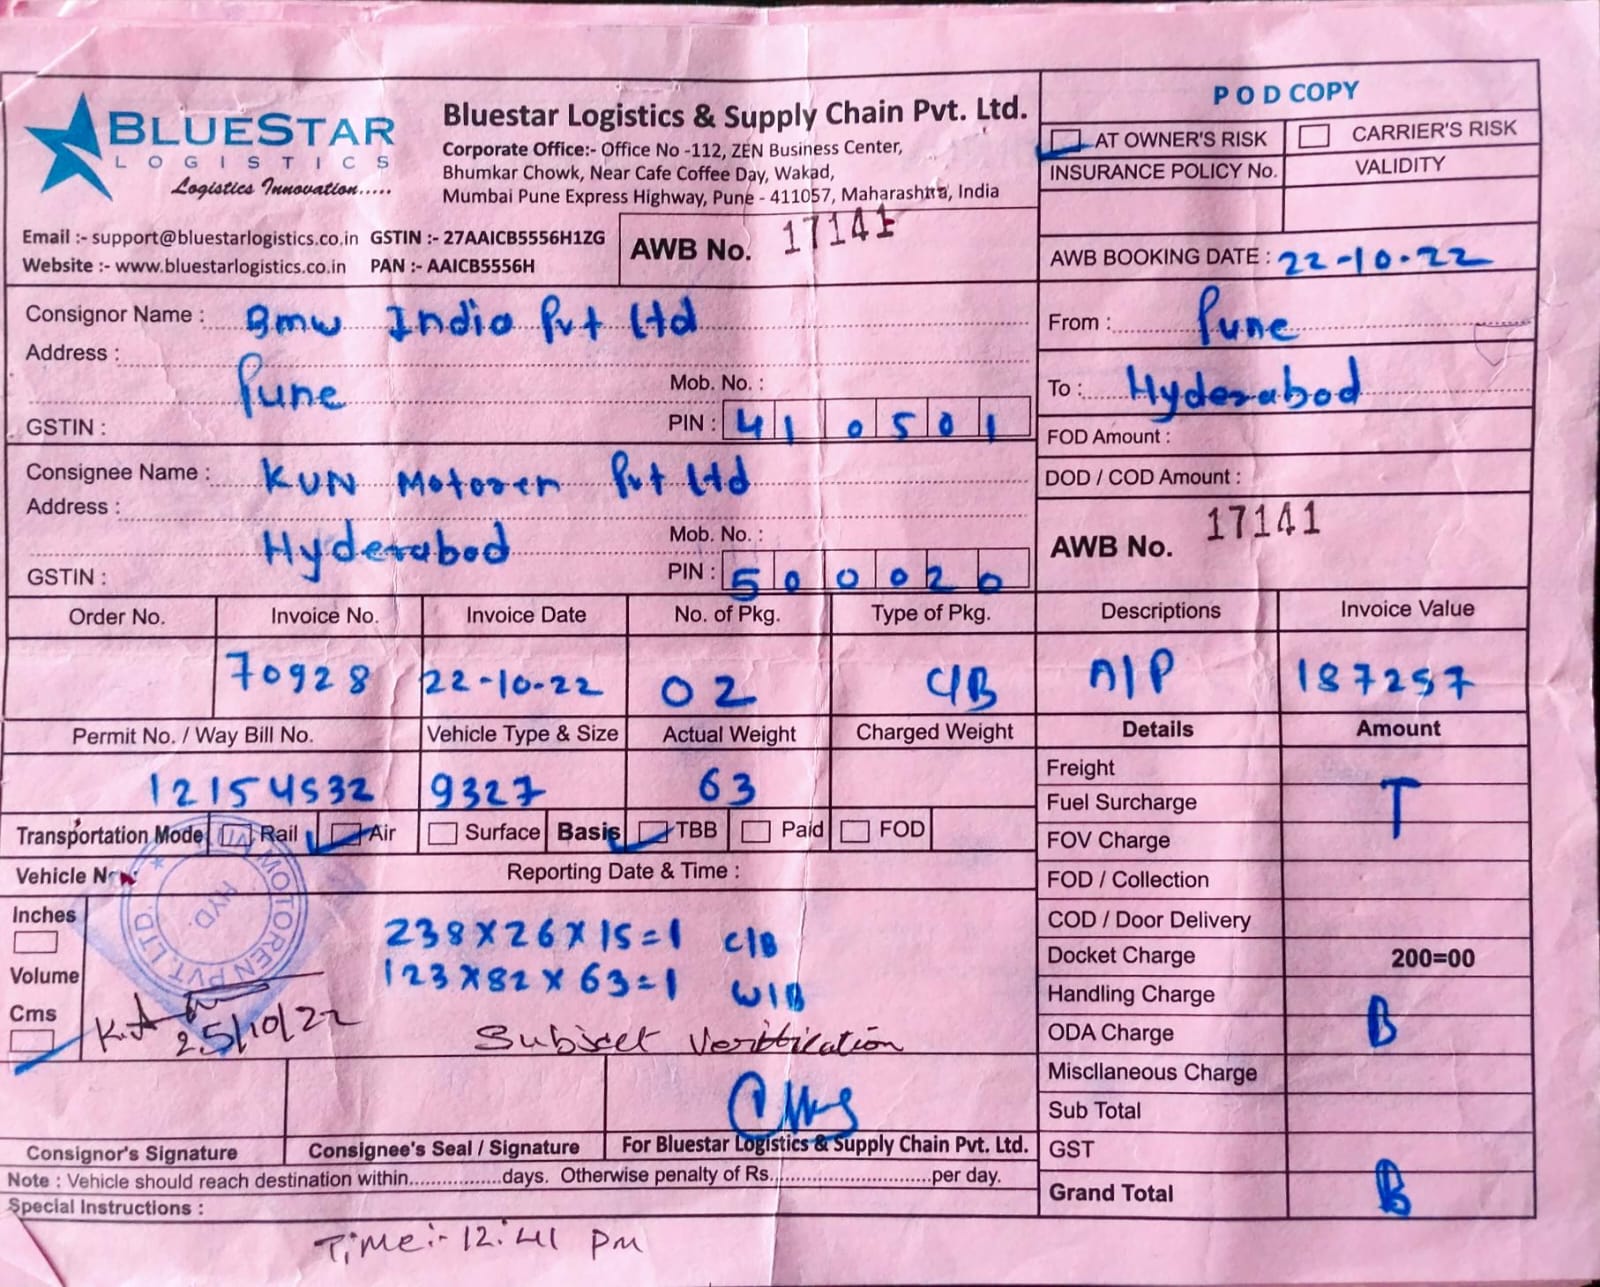 BLUESTAR
LOGISTICS
Logistics Innovation.....
Bluestar Logistics & Supply Chain Pvt. Ltd.
Corporate Office:- Office No -112, ZEN Business Center,
Bhumkar Chowk, Near Cafe Coffee Day, Wakad,
Mumbai Pune Express Highway, Pune - 411057, Maharashtra, India
Email :- support@bluestarlogistics.co.in GSTIN :- 27AAICB5556H1ZG
Website :- www.bluestarlogistics.co.in PAN :- AAICB5556H
AWB No. 17141
POD COPY
AT OWNER'S RISK CARRIER'S RISK
INSURANCE POLICY No. VALIDITY
AWB BOOKING DATE : 22-10-22
Consignor Name : Bmw India Pvt Ltd
Address :
Pune
Mob. No. :
GSTIN : PIN : 410501
From : Pune
To : Hyderabad
FOD Amount :
DOD / COD Amount :
AWB No. 17141
Consignee Name : KUN Motoren Pvt Ltd
Address :
Hyderabad
Mob. No. :
GSTIN : PIN : 500020
Order No. Invoice No. Invoice Date No. of Pkg. Type of Pkg. Descriptions Invoice Value
70928 22-10-22 02 C/B A/P 187257
Permit No. / Way Bill No. Vehicle Type & Size Actual Weight Charged Weight Details Amount
12154532 9327 63
Transportation Mode Rail Air Surface Basis TBB Paid FOD
Vehicle No. Reporting Date & Time :
Inches
Volume
Cms
MOTOREN PVT. LTD.
HYD.
238 x 26 x 15 = 1 C/B
123 x 82 x 63 = 1 W/B
25/10/22
Subject Verification
Freight
Fuel Surcharge
T
FOV Charge
FOD / Collection
COD / Door Delivery
Docket Charge 200=00
Handling Charge
ODA Charge
B
Miscllaneous Charge
Sub Total
GST
Grand Total
B
Consignor's Signature Consignee's Seal / Signature For Bluestar Logistics & Supply Chain Pvt. Ltd.
Note : Vehicle should reach destination within.................days. Otherwise penalty of Rs.............................per day.
Special Instructions :
Time:- 12:41 PM